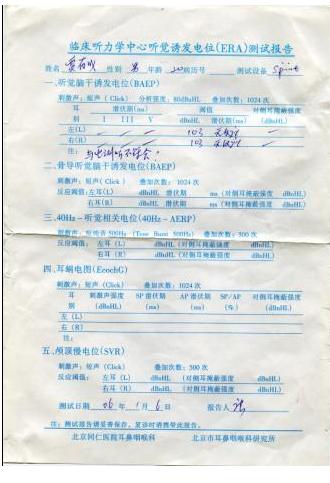 临床听力学中心听觉诱发电位(ERA)测试报告
姓名 性别 男 年龄 病历号 测试设备
一、听觉脑干诱发电位(BAEP)
刺激声：短声（Click） 分析强度：80dBnHL 叠加次数：1024次
耳 潜伏期(ms) 阈值 对侧耳掩蔽强度
别 I III V dBnHL 潜伏期(ms) (dBnHL)
左(L) 103
右(R) 103
注：
二、骨导听觉脑干诱发电位(BAEP)
刺激声：短声（Click） 叠加次数：1024次
反应阈值：左耳(L) dBnHL 潜伏期 ms（对侧耳掩蔽强度 dBnHL）
右耳(R) dBnHL 潜伏期 ms（对侧耳掩蔽强度 dBnHL）
三、40Hz－听觉相关电位(40Hz－AERP)
刺激声：短纯音 500Hz（Tone Burst 500Hz） 叠加次数：300次
反应阈值： 左耳（L） dBnHL（对侧耳掩蔽强度 dBnHL）
右耳（R） dBnHL（对侧耳掩蔽强度 dBnHL）
四、耳蜗电图(EcochG)
刺激声：短声（Click） 叠加次数：1024次
耳 刺激声强度 SP潜伏期 AP潜伏期 SP/AP 对侧耳掩蔽强度
别 (dBnHL) (ms) (ms) (%) (dBnHL)
左（L）
右（R）
注：
五、颅顶慢电位(SVR)
刺激声：短声（Click） 叠加次数：300次
反应阈值： 左耳（L） dBnHL（对侧耳掩蔽强度 dBnHL）
右耳（R） dBnHL（对侧耳掩蔽强度 dBnHL）
测试日期 06年 1月 6日 报告人
注：测试报告请妥善保存，复诊时请携带此报告。
北京同仁医院耳鼻咽喉科 北京市耳鼻咽喉科研究所